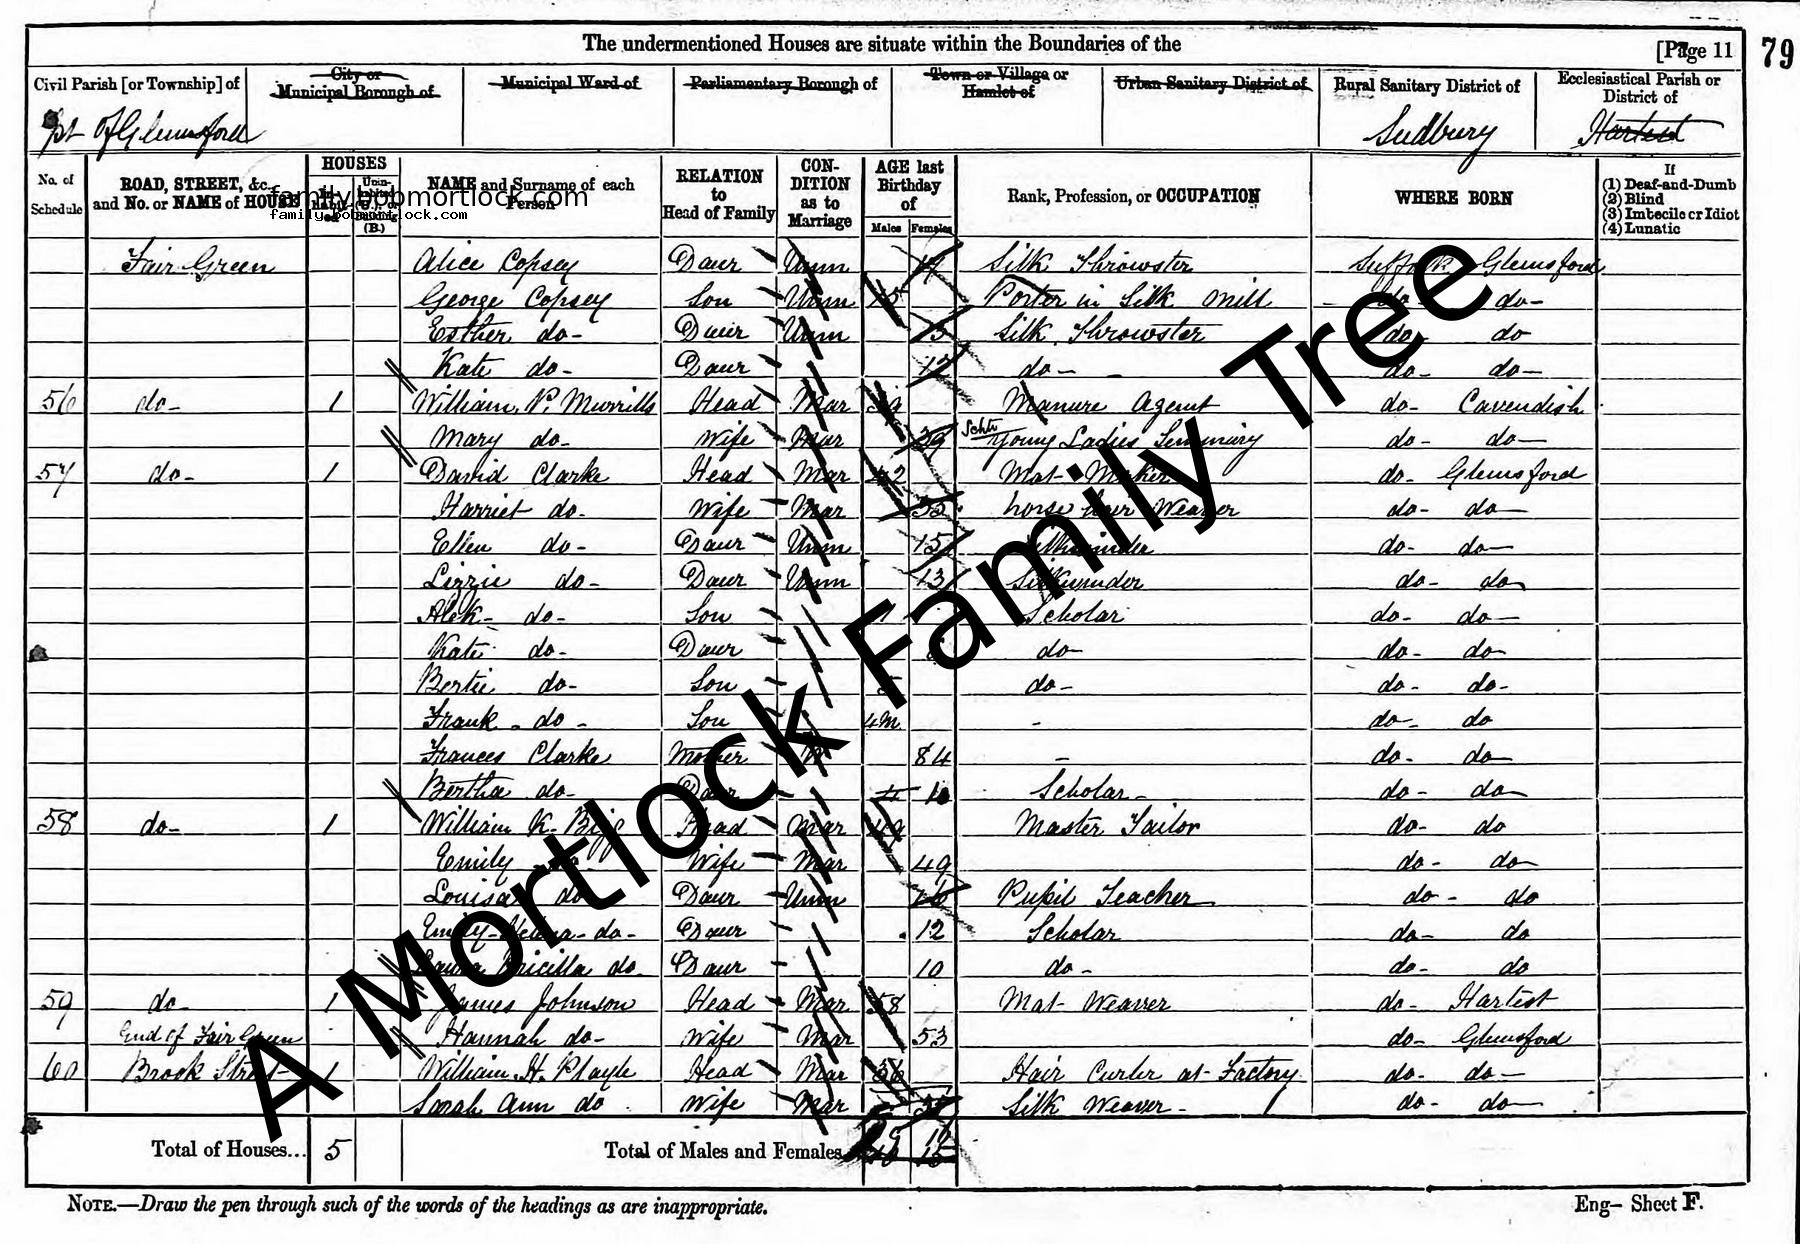 The undermentioned Houses are situate within the Boundaries of the
[Page 11
79
Civil Parish [or Township] of
City or Municipal Borough of
Municipal Ward of
Parliamentary Borough of
Town or Village or Hamlet of
Urban Sanitary District of
Rural Sanitary District of
Ecclesiastical Parish or District of
pt of Glemsford
Sudbury
Hartest
No. of Schedule
ROAD, STREET, &c., and No. or NAME of HOUSE
HOUSES
(B.)
NAME and Surname of each Person
RELATION to Head of Family
CON- DITION as to Marriage
AGE last Birthday of
Males Females
Rank, Profession, or OCCUPATION
WHERE BORN
If
(1) Deaf-and-Dumb
(2) Blind
(3) Imbecile or Idiot
(4) Lunatic
family.bobmortlock.com
family.bobmortlock.com
Fair Green Alice Copsey Daur Unm Silk Throwster Suffolk Glemsford
George Copsey Son Unm 15 Porter in Silk Mill do- do-
Esther do- Daur Unm Silk Throwster do- do
Kate do- Daur 12 do- do- do-
56 do- 1 William P. Murrills Head Mar Manure Agent do- Cavendish
Mary do- Wife Mar 39 Young Ladies Seminary do- do-
57 do- 1 David Clarke Head Mar Mat Maker do- Glemsford
Harriet do- Wife Mar horse hair Weaver do- do-
Ellen do- Daur Unm 15 do- do-
Lizzie do- Daur Unm 13 Silkwinder do- do
Alek- do- Son Scholar do- do-
Kate do- Daur do- do- do-
Bertie do- Son do- do- do-
Frank do- Son 4m - do- do
Frances Clarke Mother W 84 - do- do-
Bertha do- Daur Scholar- do- do-
58 do- 1 William K. Head Mar 49 Master Tailor do- do
Emily Wife Mar 49 do- do-
Louisa do Daur Unm 16 Pupil Teacher do- do
Emily Helena do- Daur 12 Scholar do- do
Laura Pricilla do- Daur 10 do- do- do
59 do- 1 James Johnson Head Mar 58 Mat Weaver do- Hartest
End of Fair Green Hannah do- Wife Mar 53 do- Glemsford
60 Brook Street 1 William H. Playle Head Mar 36 Hair Curler at Factory do- do-
Sarah Ann do Wife Mar Silk Weaver- do- do-
Total of Houses... 5 Total of Males and Females
NOTE.—Draw the pen through such of the words of the headings as are inappropriate.
Eng— Sheet F.
A Mortlock Family Tree